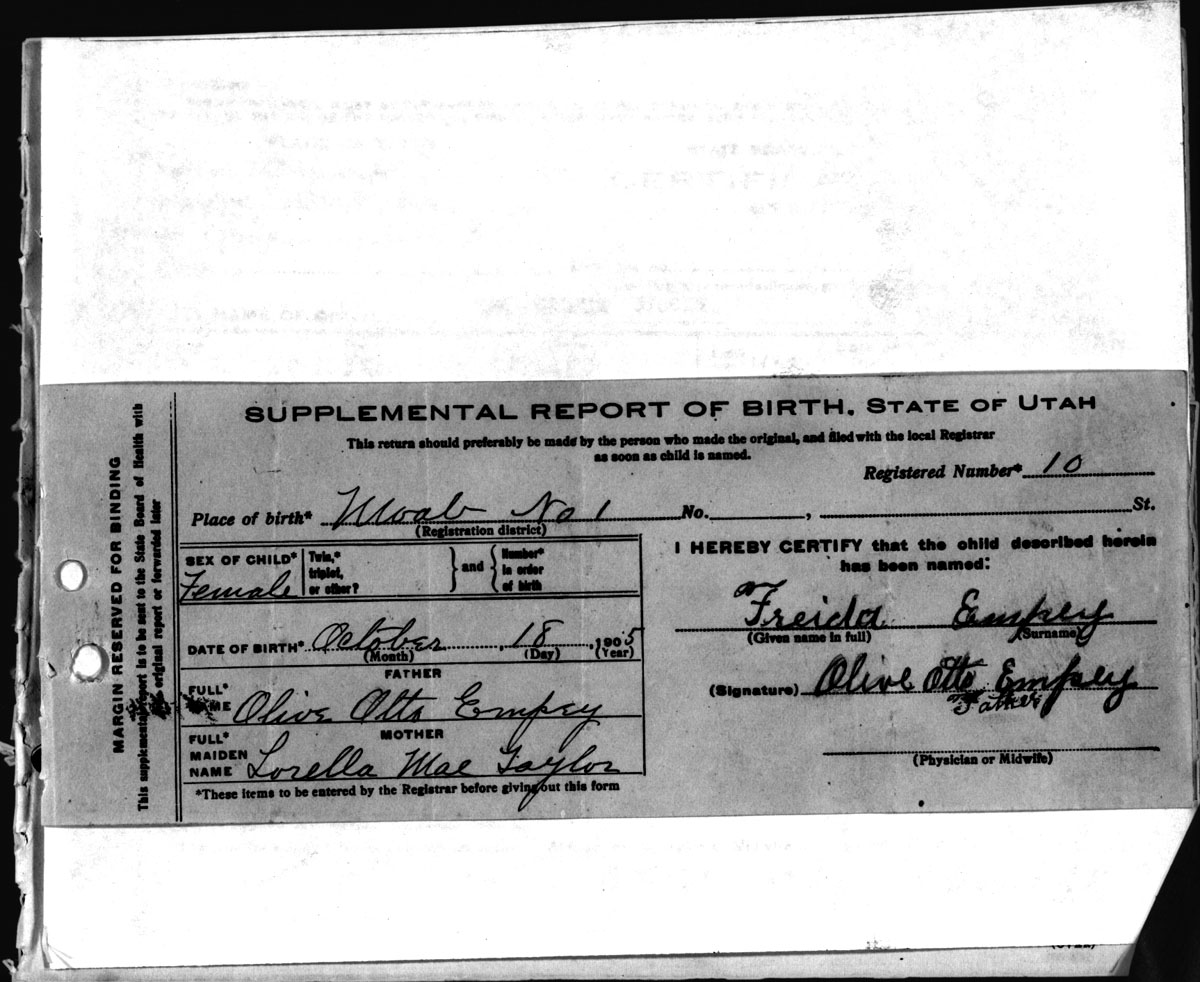 SUPPLEMENTAL REPORT OF BIRTH. STATE OF UTAH
This return should preferably be made by the person who made the original, and filed with the local Registrar
as soon as child is named.
Registered Number* 10
Place of birth* Moab No 1 No. , St.
(Registration district)
SEX OF CHILD* Female
Twin,* triplet, or other?
and
Number* in order of birth
DATE OF BIRTH* October 18, 1905
(Month) (Day) (Year)
FATHER
FULL* NAME Olive Otto Empey
MOTHER
FULL* MAIDEN NAME Lorella Mae Taylor
*These items to be entered by the Registrar before giving out this form
I HEREBY CERTIFY that the child described herein
has been named:
Freida Empey
(Given name in full) (Surname)
(Signature) Olive Otto Empey
Father
(Physician or Midwife)
MARGIN RESERVED FOR BINDING
This supplemental report is to be sent to the State Board of Health with
original report or forwarded later